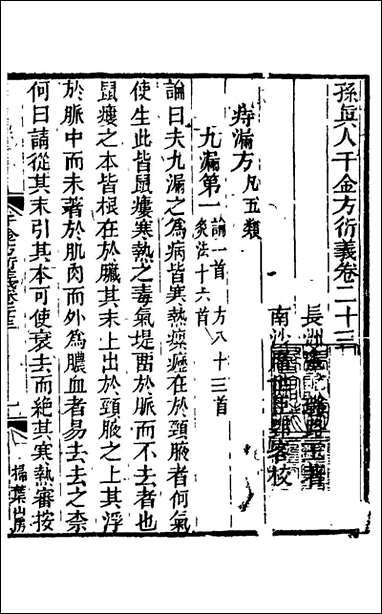 孫真人千金方衍義卷二十三
長洲張璐路玉著
南沙席世臣郢客校
痔漏方凡五類
九漏第一論一首 方八十三首 灸法十六首
論曰夫九漏之為病皆寒熱瘰癧在於頸腋者何氣
使生此皆鼠瘻寒熱之毒氣堤畱於脈而不去者也
鼠瘻之本皆根在於臟其末上出於頸腋之上其浮
於脈中而未著於肌肉而外為膿血者易去去之柰
何曰請從其末引其本可使衰去而絶其寒熱審按
掃葉山房